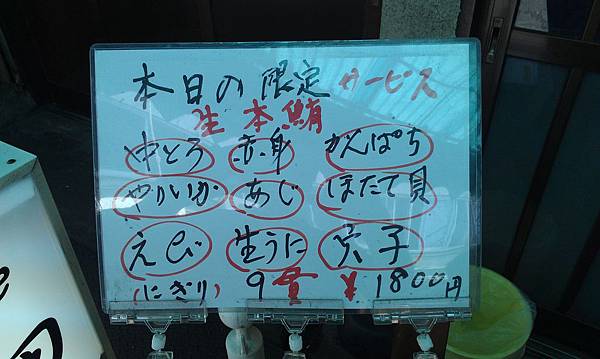 本日の限定サービス
生本鮪
中とろ 赤身 かんぱち
やりいか あじ ほたて貝
えび 生うに 穴子
(にぎり) 9貫 ¥1800円